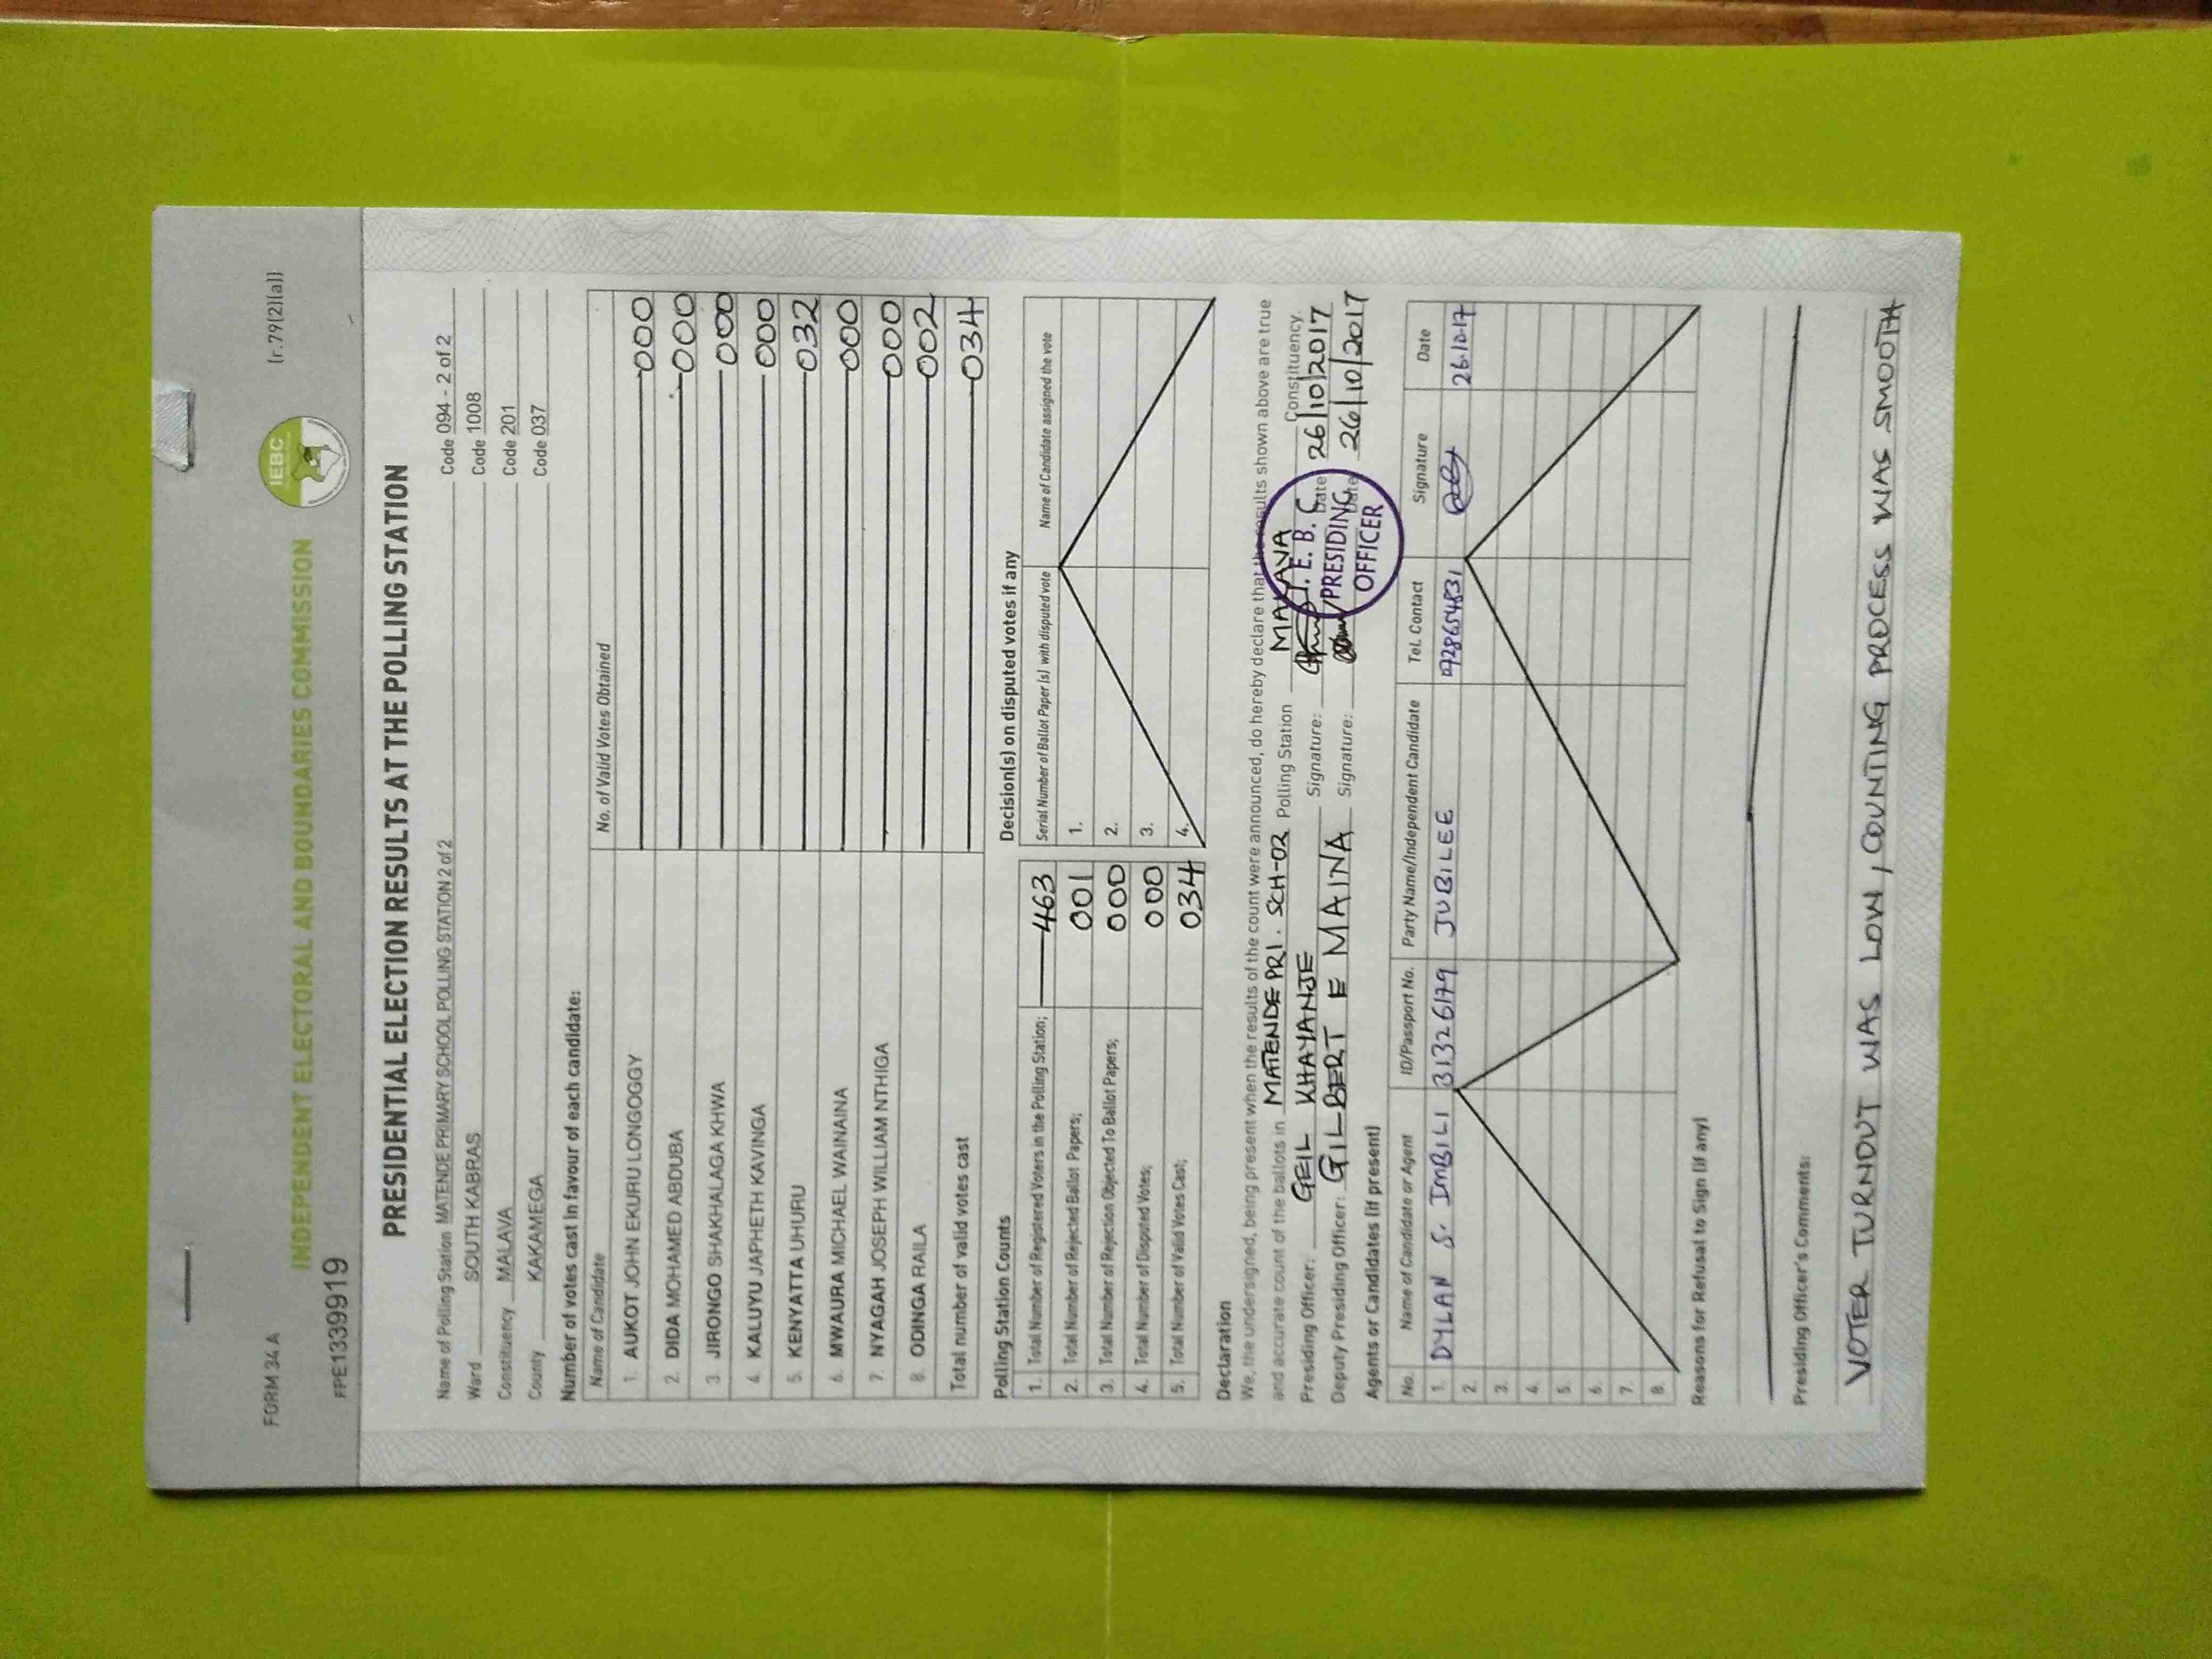 FORM 34 A
(r.79(2)(a))
INDEPENDENT ELECTORAL AND BOUNDARIES COMMISSION
IEBC
FPE1339919
PRESIDENTIAL ELECTION RESULTS AT THE POLLING STATION
Name of Polling Station MATENDE PRIMARY SCHOOL POLLING STATION 2 of 2 Code 094 - 2 of 2
Ward SOUTH KABRAS Code 1008
Constituency MALAVA Code 201
County KAKAMEGA Code 037
Number of votes cast in favour of each candidate:
Name of Candidate No. of Valid Votes Obtained
1. AUKOT JOHN EKURU LONGOGGY 000
2. DIDA MOHAMED ABDUBA 000
3. JIRONGO SHAKHALAGA KHWA 000
4. KALUYU JAPHETH KAVINGA 000
5. KENYATTA UHURU 032
6. MWAURA MICHAEL WAINAINA 000
7. NYAGAH JOSEPH WILLIAM NTHIGA 000
8. ODINGA RAILA 002
Total number of valid votes cast 034
Polling Station Counts
1. Total Number of Registered Voters in the Polling Station; 463
2. Total Number of Rejected Ballot Papers; 001
3. Total Number of Rejection Objected To Ballot Papers; 000
4. Total Number of Disputed Votes; 000
5. Total Number of Valid Votes Cast; 034
Decision(s) on disputed votes if any
Serial Number of Ballot Paper (s) with disputed vote Name of Candidate assigned the vote
1.
2.
3.
4.
Declaration
We, the undersigned, being present when the results of the count were announced, do hereby declare that the results shown above are true
and accurate count of the ballots in MATENDE PRI. SCH-02 Polling Station MALAVA Constituency.
Presiding Officer: GEIL KHAYANJE Signature: Date 26/10/2017
Deputy Presiding Officer: GILBERT E MAINA Signature: Date 26/10/2017
I.E.B.C
PRESIDING
OFFICER
Agents or Candidates (if present)
No. Name of Candidate or Agent ID/Passport No. Party Name/Independent Candidate Tel. Contact Signature Date
1. DYLAN S. IMBILI 31326179 JUBILEE 0728654831 26.10.17
2.
3.
4.
5.
6.
7.
8.
Reasons for Refusal to Sign (if any)
Presiding Officer's Comments:
VOTER TURNOUT WAS LOW, COUNTING PROCESS WAS SMOOTH